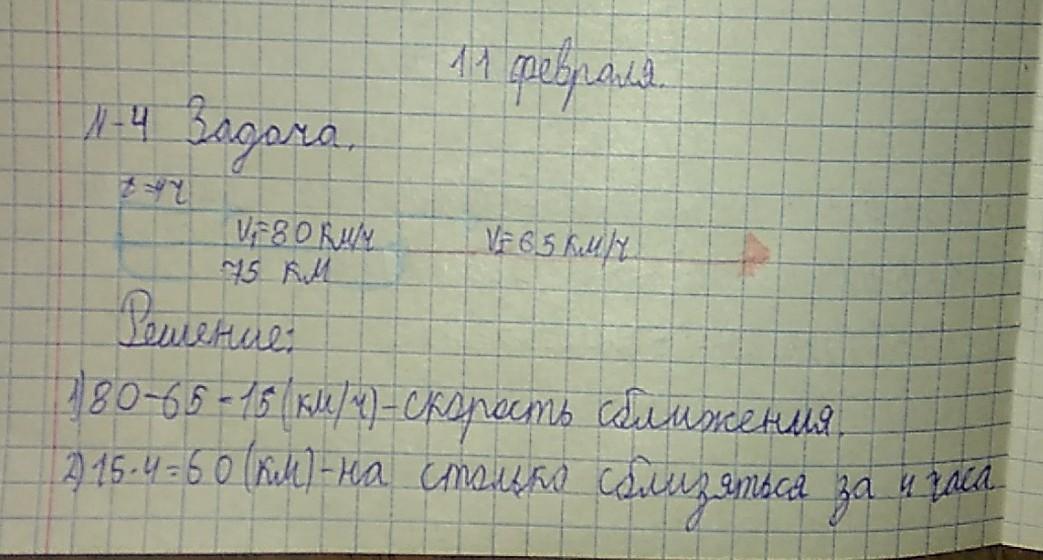 11 февраля.
N-4 Задача.
t=4ч
V=80 км/ч V=65 км/ч
75 км
Решение:
1)80-65=15(км/ч)-скорость сближения.
2)15·4=60(км)-на столько сблизяться за 4 часа